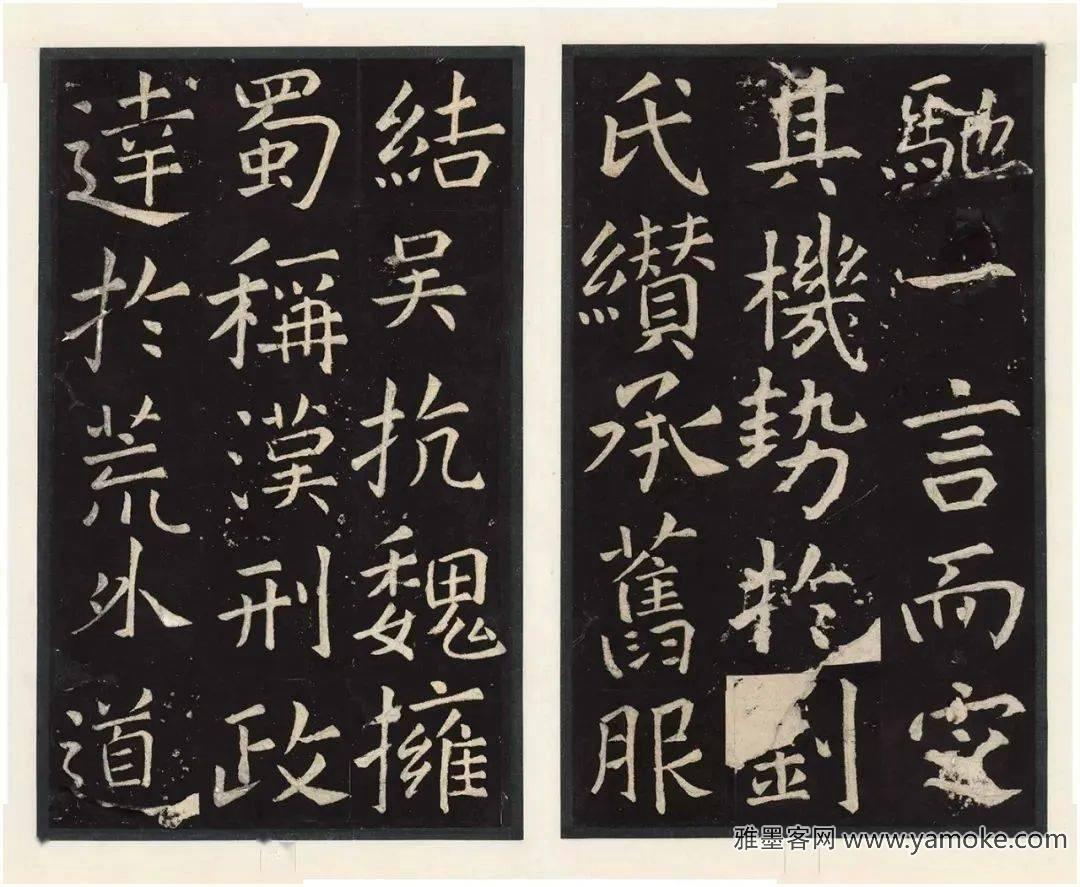 馳一言而
其機勢於劉
氏纘承舊服
結吳抗魏擁
蜀稱漢刑政
達於荒外道
雅墨客网 www.yamoke.com